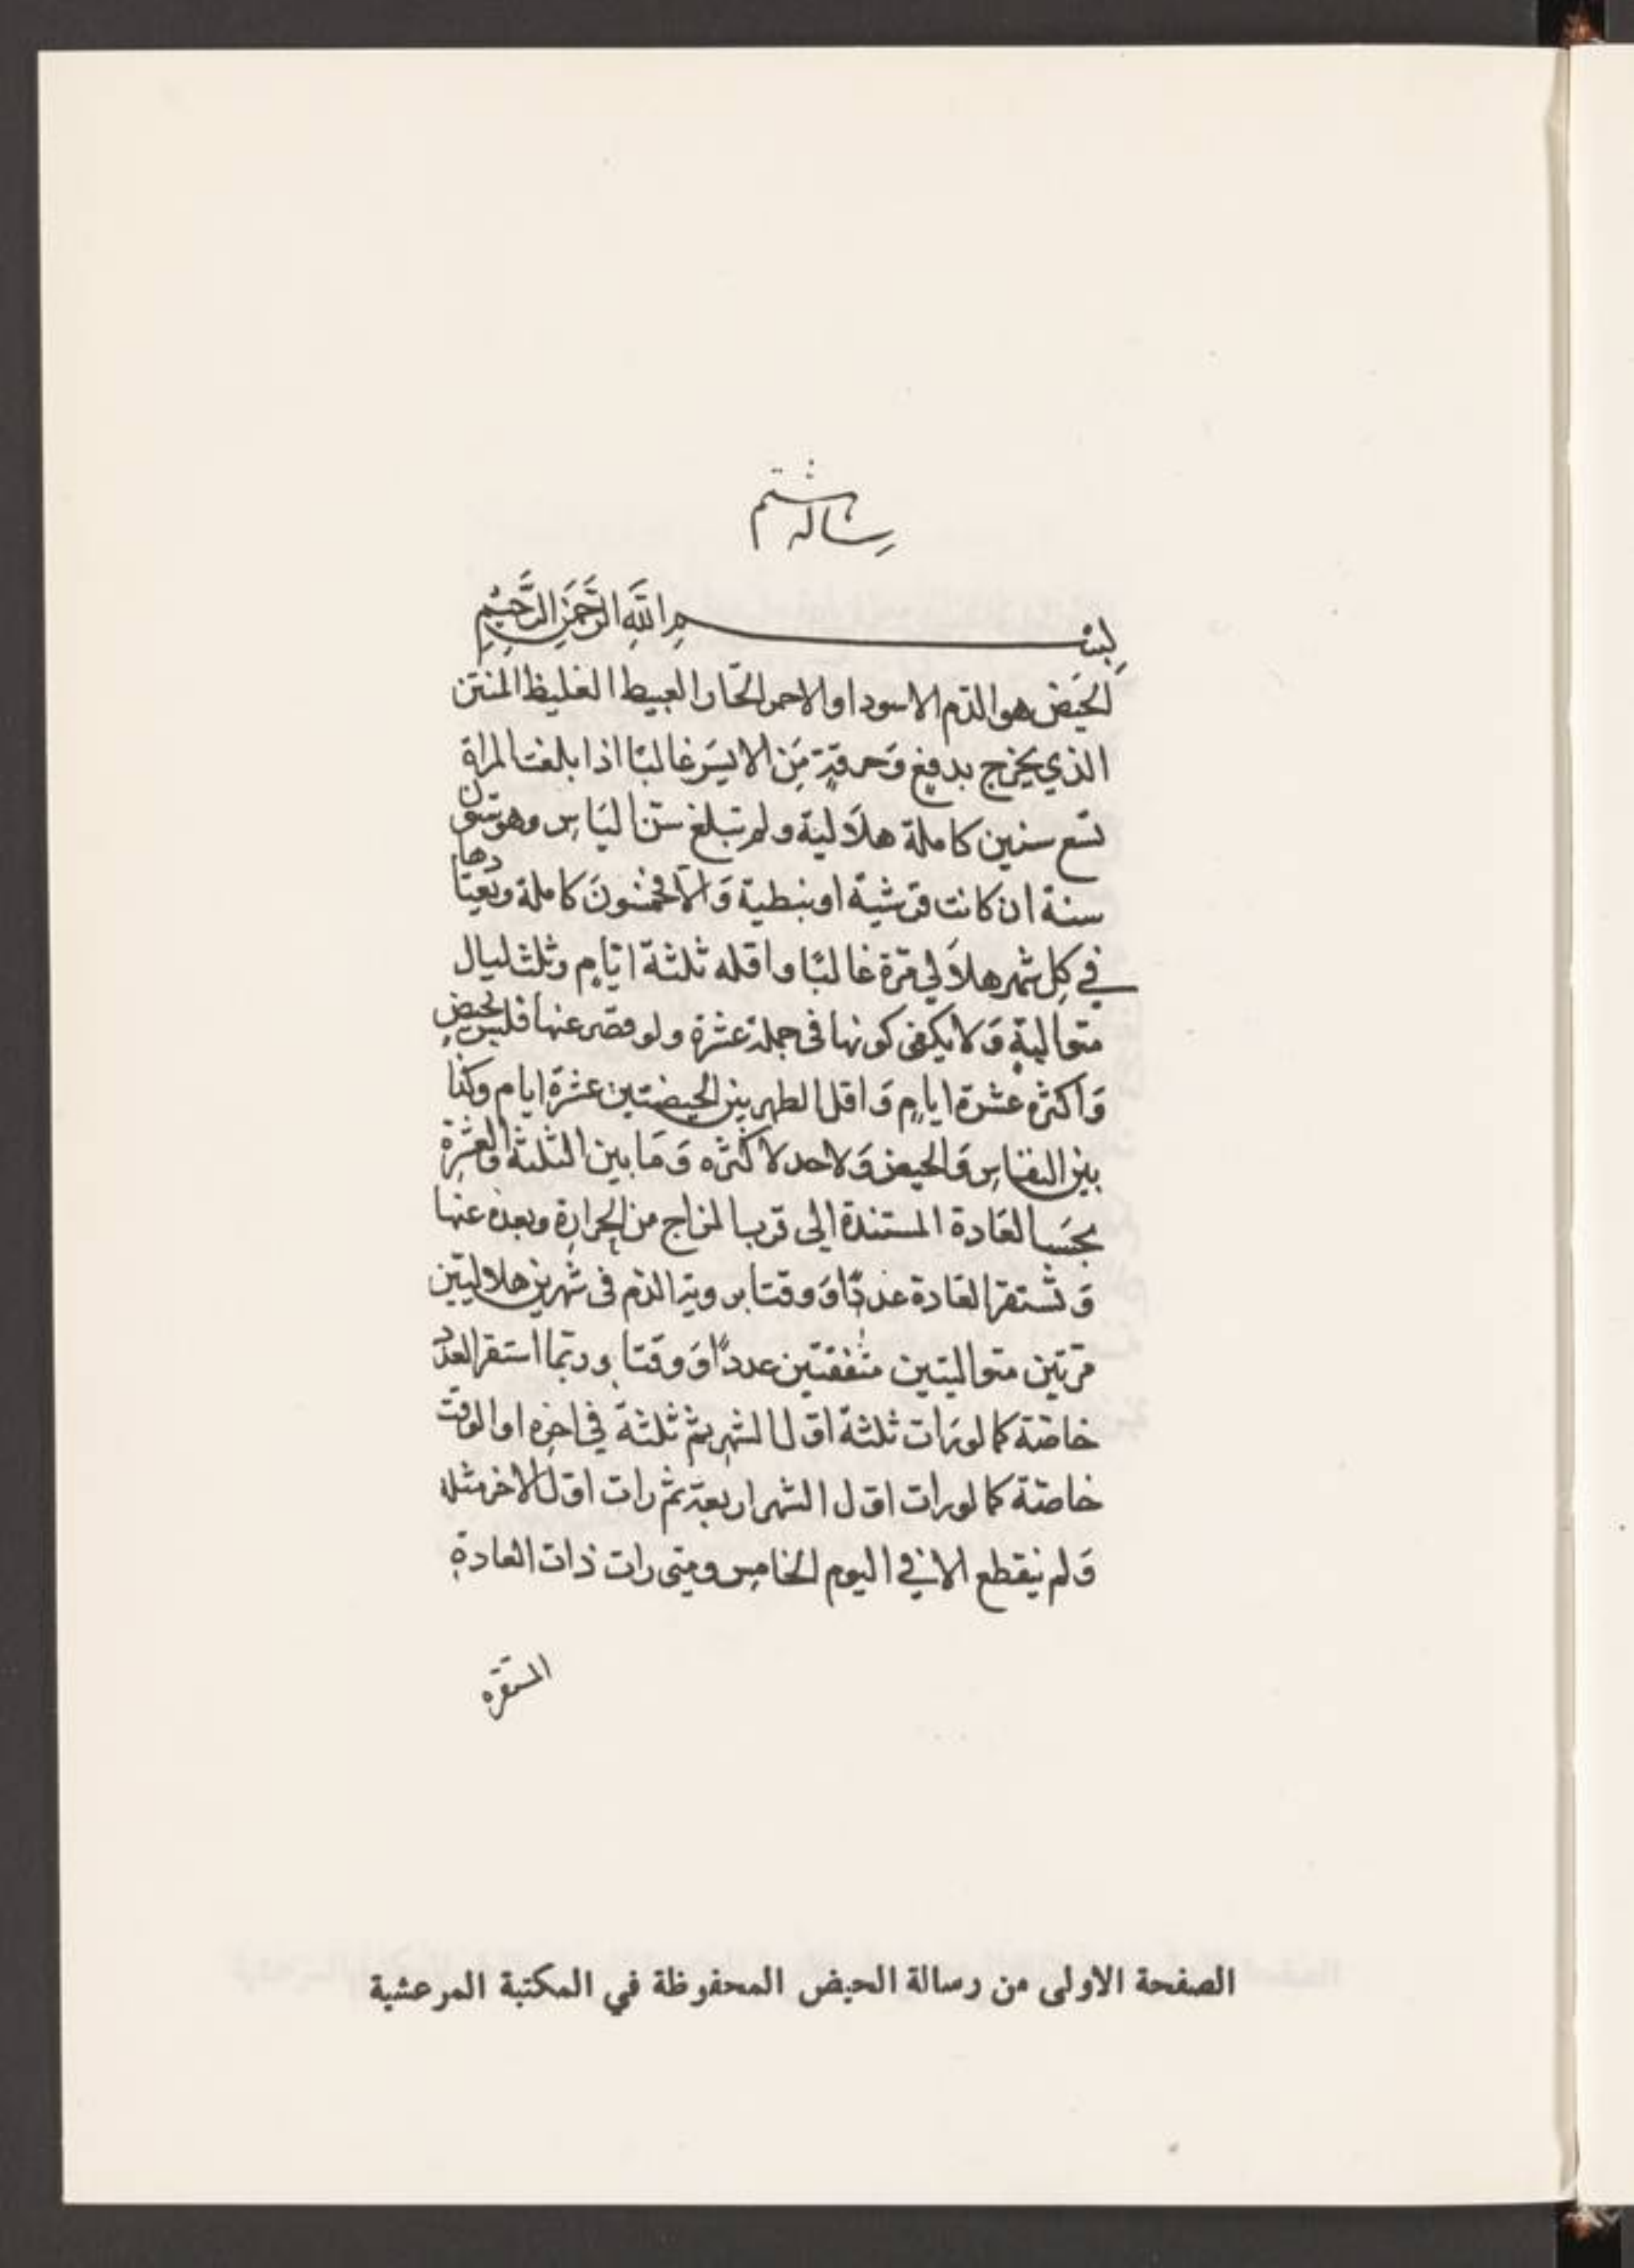 رساله هشتم
بسم الله الرحمن الرحيم
الحَيض هو الدّم الاسود او الاحمر الحّار العبيط الغليظ المنتن
الذي يخرج بدفعٍ وَحرقةٍ مَن الايسَر غالبًا اذا بلغت المراة
تسع سنين كاملة هلاَلية ولم تبلغ سّن الياس وهو ستّون
سنة ان كانت قرشيّة او نبطية وَالاّ فخمسُونَ كاملة ويعتادها
في كل شهر هلاَلي مَرّة غالبًا واقله ثلثة ايّامٍ وثلث ليال
متواليةٍ وَلا يكفى كونها فى جملة عشرة ولو قصر عنها فليس بحيضٍ
وَاكثره عشرة ايامٍ وَاقل الطهر بين الحيضتين عشرة ايام وكذا
بين النفاسِ وَالحيض وَلاحد لاكثره وَمَا بين الثلثة والعشرة
بحسَب العَادة المستندة الى قرب المزاج من الحرارة وبعده عنها
وَتستقر العَادة عددًا وَوقتا بروية الدّم فى شهرين هلاليّين
مرّتين متواليتين متّفقتين عددًا وَوقتا وربّما استقر العدد
خاصّة كما لو رَات ثلثة اوّل الشهر ثم ثلثة في اخره او الوقت
خاصّة كما لو رات اوّل الشهر اربعة ثم رات اوّل الاخر مثله
وَلم ينقطع الا في اليوم الخامس ومتى رات ذات العادة
المستقرّه
الصفحة الاولى من رسالة الحيض المحفوظة في المكتبة المرعشية